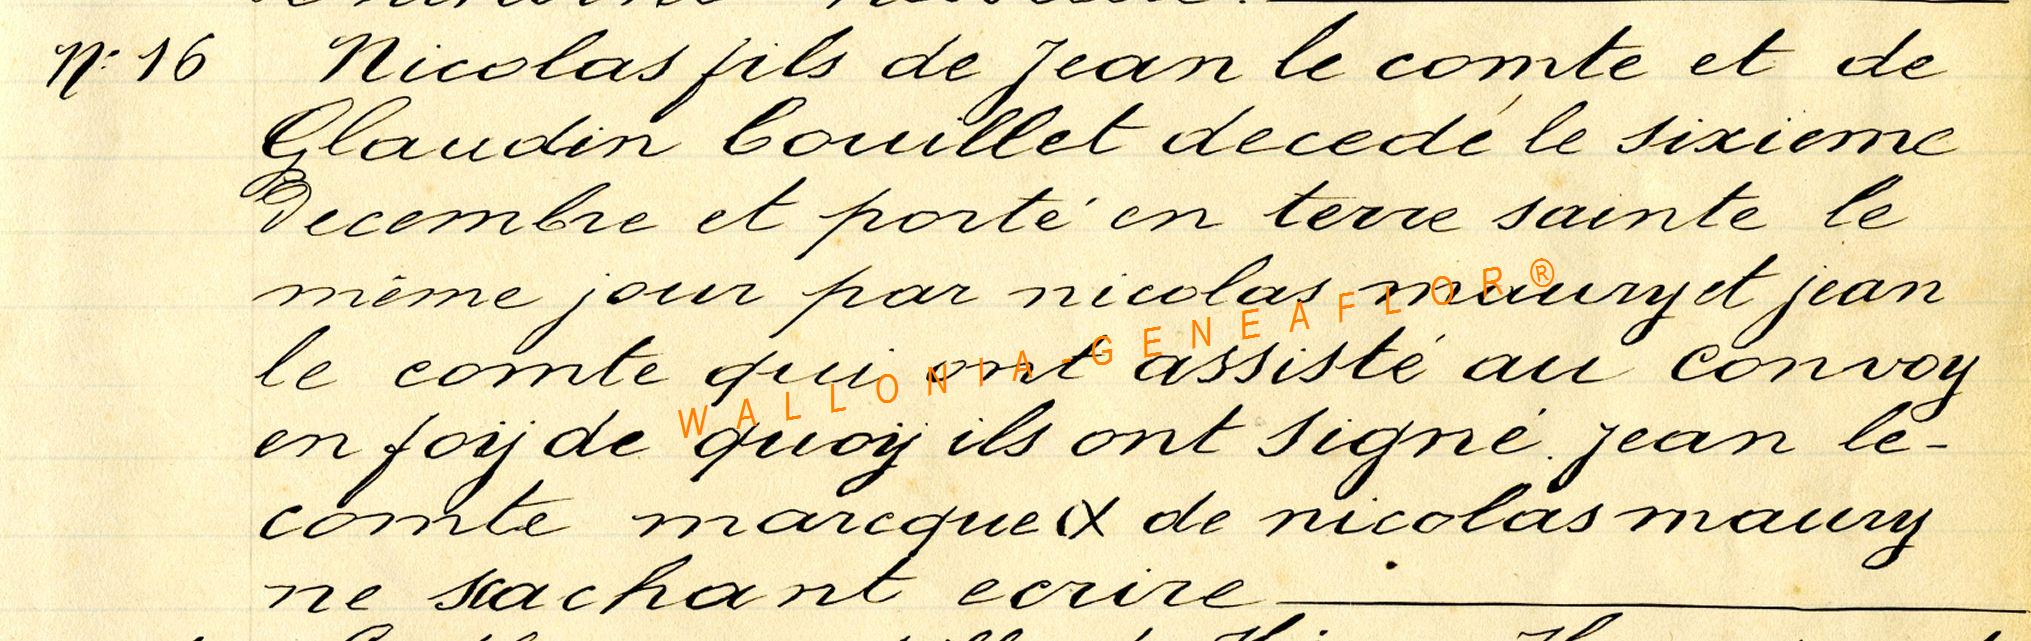 N° 16 Nicolas fils de Jean le comte et de
Glaudin Couillet decedé le sixieme
Decembre et porté en terre sainte le
même jour par nicolas maury et jean
le comte qui ont assisté au convoy
en foÿ de quoÿ ils ont signé. Jean le-
comte marcque X de nicolas maury
ne sachant ecrire
WALLONIA-GENEAFLOR®